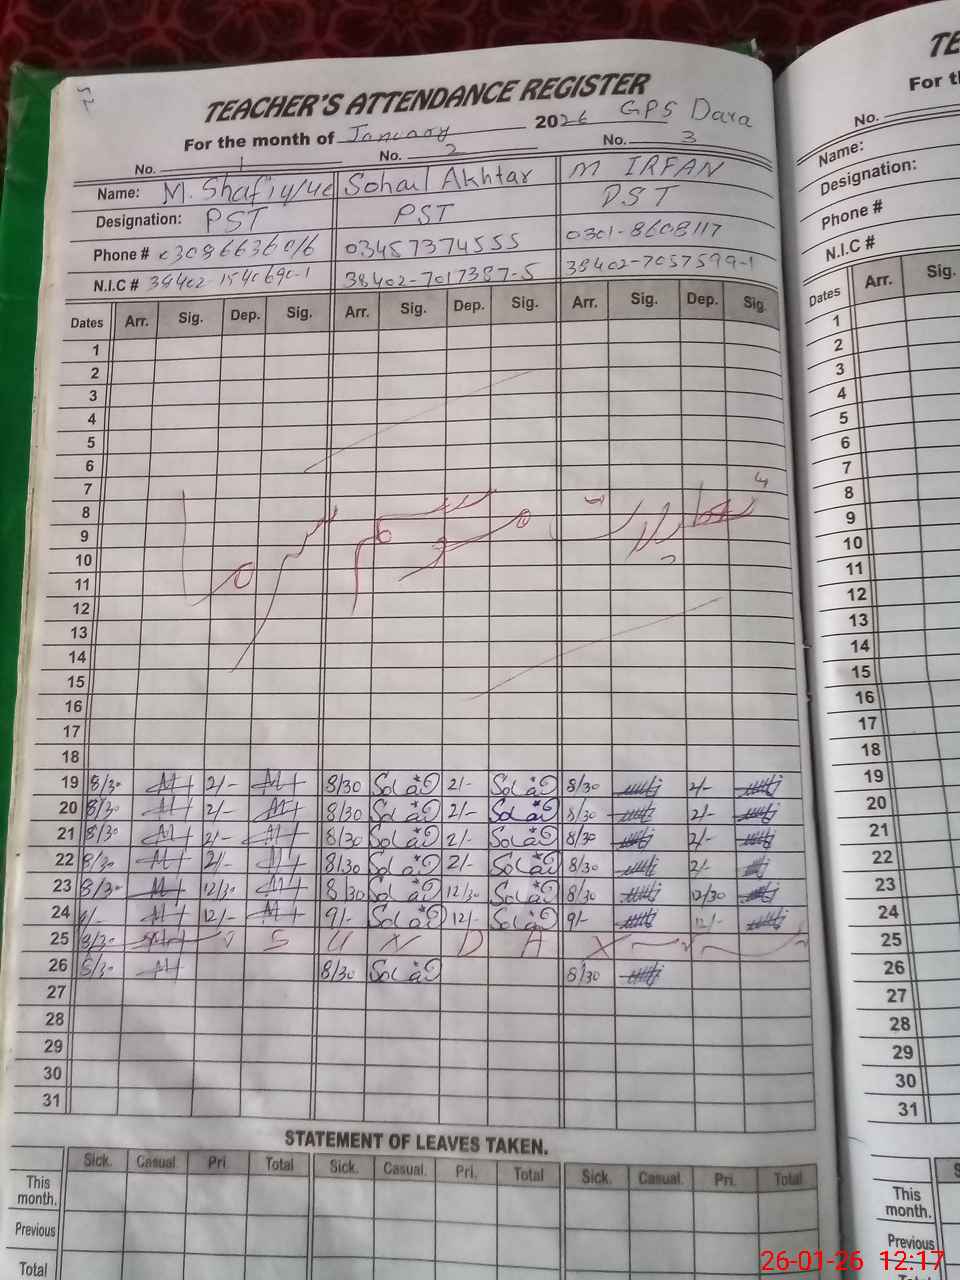 52
TEACHER'S ATTENDANCE REGISTER
For the month of January 2026 GPS Dara
No. 1 No. 2 No. 3
Name: M. Shafiq Sohail Akhtar M IRFAN
Designation: PST PST PST
Phone # 03086636016 03457374555 0301-8608117
N.I.C # 38402-1540690-1 38402-7017387-5 38402-7057599-1
Dates Arr. Sig. Dep. Sig. Arr. Sig. Dep. Sig. Arr. Sig. Dep. Sig.
1
2
3
4
5
6
7
8
9
10
11
12
13
14
15
16
17
18
19 8/30 2/- 8/30 2/- 8/30 2/-
20 8/30 2/- 8/30 2/- 8/30 2/-
21 8/30 2/- 8/30 2/- 8/30 2/-
22 8/30 2/- 8/30 2/- 8/30 2/-
23 8/30 12/30 8/30 12/30 8/30 12/30
24 9/- 12/- 9/- 12/- 9/- 12/-
25 8/30 S U N D A Y
26 8/30 8/30 8/30
27
28
29
30
31
STATEMENT OF LEAVES TAKEN.
Sick. Casual. Pri. Total Sick. Casual. Pri. Total Sick. Casual. Pri. Total
This month.
Previous
Total
TE
For th
No.
Name:
Designation:
Phone #
N.I.C #
Dates Arr. Sig.
1
2
3
4
5
6
7
8
9
10
11
12
13
14
15
16
17
18
19
20
21
22
23
24
25
26
27
28
29
30
31
S
This month.
Previous
26-01-26 12:17